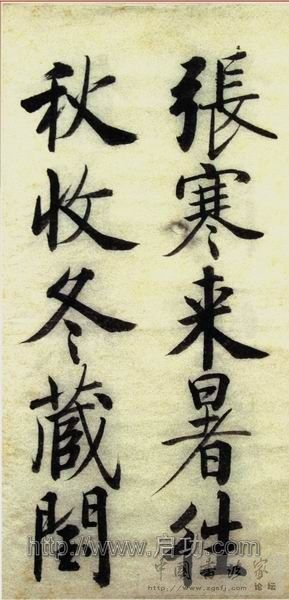 張寒来暑往
秋收冬蔵閏
http://www.启功.com
中國书法家
论坛
http://www.zgsfj.com